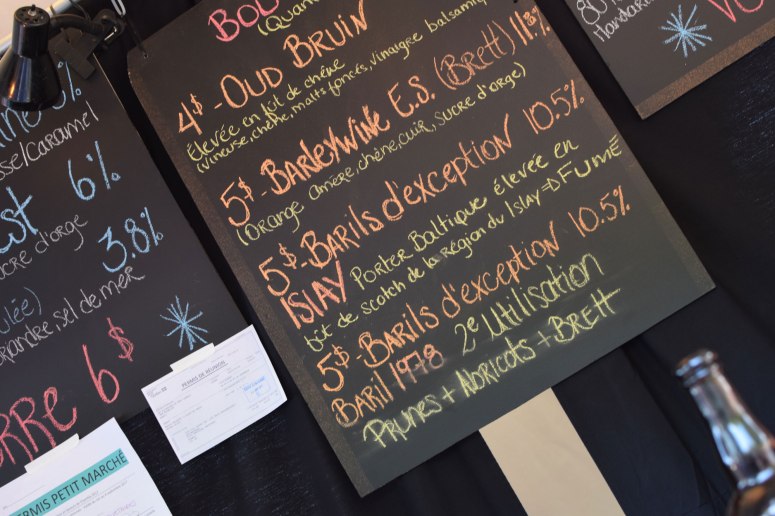 (Quan
4$-OUD BRUIN
élevée en fût de chêne
(vineuse, chêne, malts foncés, vinaigre balsamiq
5$-BARLEYWINE E.S. (BRETT) 11.8%
(Orange amère, chêne, cuir, sucre d'orge)
5$-BARILS d'exception 10.5%
ISLAY Porter Baltique élevée en
fût de scotch de la région du Islay => FUMÉ
5$-BARILS d'exception 10.5%
BARIL 1978 2e Utilisation
PRUNES + ABRICOTS + BRETT
sse/Caramel
6%
cre d'orge
3.8%
ulée)
oriandre, sel de mer
6$
RRE
PERMIS DE RÉUNION
RMIS PETIT MARCHÉ